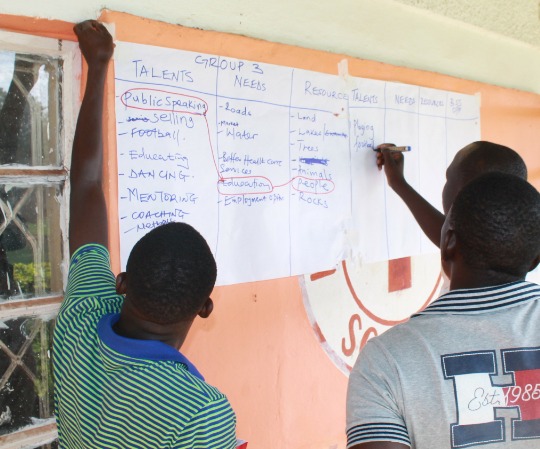 GROUP 3
TALENTS
Public Speaking
Selling
Football.
Educating
DANCING.
MENTORING
COACHING
NEEDS
Roads
Water
Better Health care
Services
Education
Employment
RESOURCES
Land
Lakes
Trees
Animals
People
ROCKS
TALENTS
NEEDS
Playing
Est. 1985
H